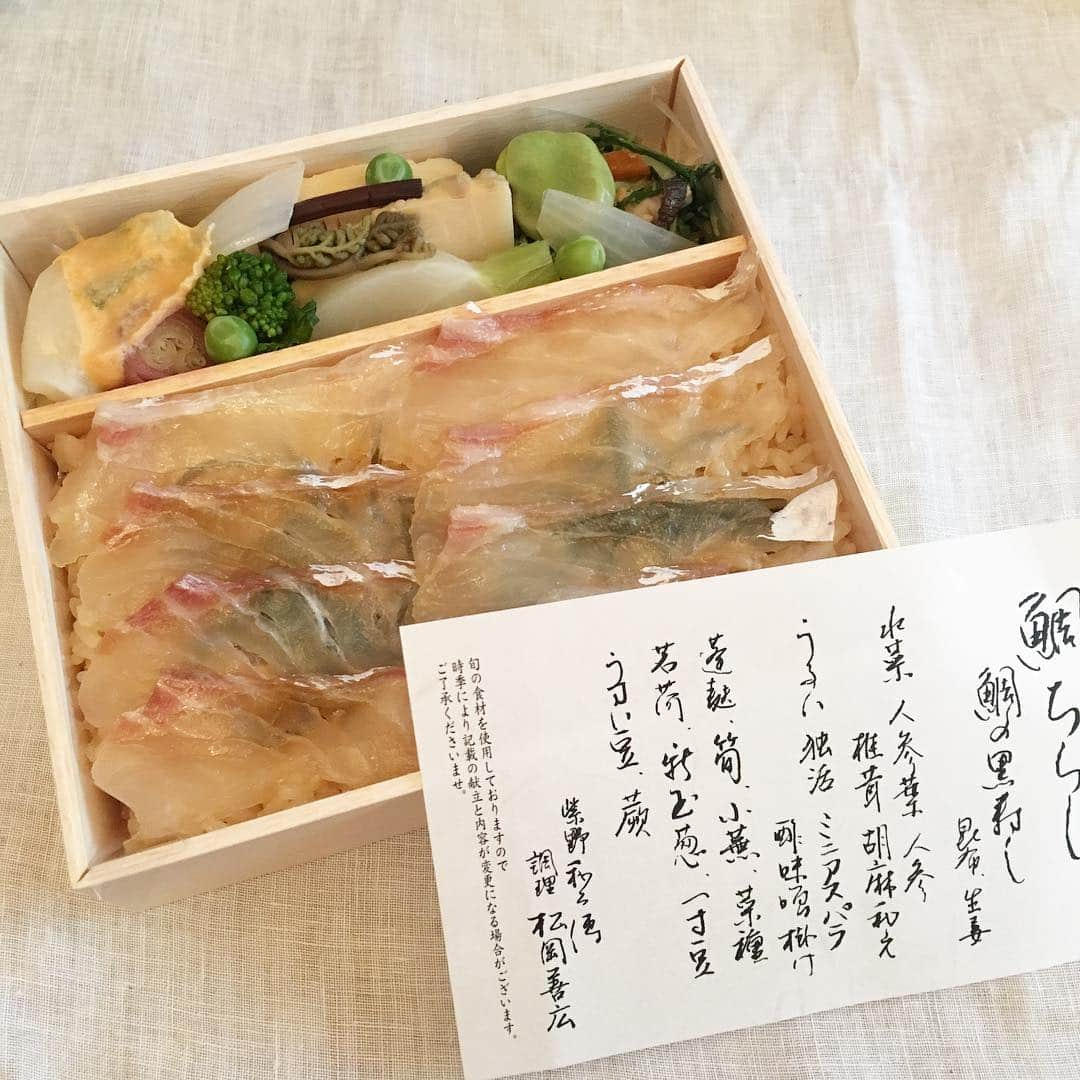 鯛ちらし
鯛の黒寿し
昆布、生姜
水菜 人参葉 人参
椎茸 胡麻和え
うるい 独活 ミニアスパラ
酢味噌掛け
蓬麩、筍、小蕪、菜種
茗荷、新玉葱、一寸豆
うすい豆、蕨
紫野和久傳
調理 松岡善広
旬の食材を使用しておりますので
時季により記載の献立と内容が変更になる場合がございます。
ご了承くださいませ。